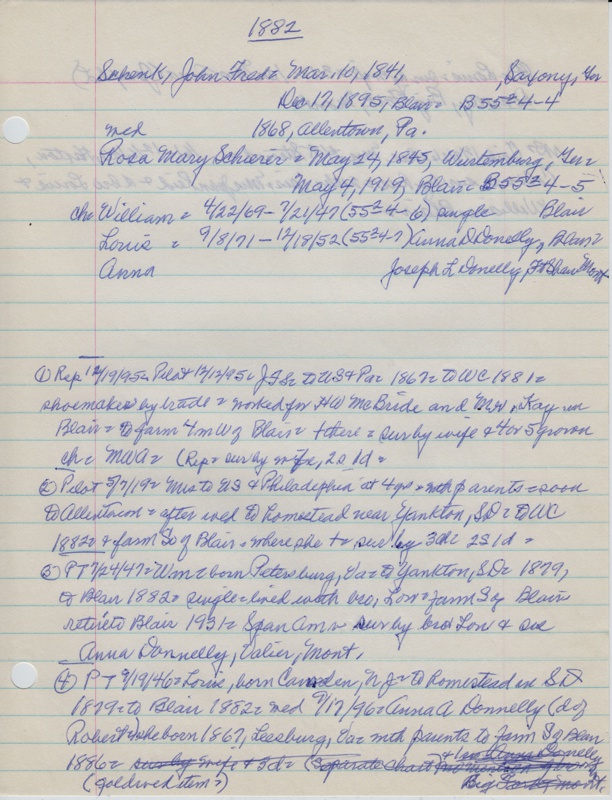 1882
Schenk, John Fred = Mar. 10, 1841, Saxony, Ger
Dec 17, 1895, Blair = B 55²4-4
med 1868, Allentown, Pa.
Rosa Mary Schierer = May 24, 1845, Wurtemburg, Ger =
May 4, 1919, Blair = B55²4-5
ch = William = 4/22/69 - 7/21/47 (55²4-6) single Blair
Louis = 9/8/71 - 12/18/52 (55²4-7) Anna D Donelly, Blair
Anna Joseph L Donelly, Ft Shaw Mont
① Rep 12/19/95 = Pilot 12/12/95 = J F S = to US & Pa = 1867 = to WC 1881 =
shoemaker by trade = worked for HW McBride and Kay in
Blair = to farm 4 m W of Blair = + there = sur by wife & 4 or 5 grown
ch = MWA = (Rep = sur by wife, 2s 1d =
② Pilot 5/7/19 = Mrs to US & Philadelphia at 4 yrs = with parents = soon
to Allentown = after wed to homestead near Yankton, SD = to WC
1882 = farm So of Blair = where she + = sur by 3 ch = 2S 1d =
③ PT 7/24/47 = Wm = born Petersburg, Va = to Yankton, SD = 1879,
to Blair 1882 = single = lived with bro, Lou = farm So of Blair
retire to Blair 1931 = Span Am = sur by bro Lou & sis
Anna Donnelly, Valier, Mont.
④ PT 9/19/46 = Louie, born Camden, NJ = to homestead in SD
1879 = to Blair 1882 = med 9/17/96 = Anna A Donnelly (d of
Robert) she born 1867, Leesburg, Va = with parents to farm So of Blair
1886 = sur by wife & 3d = (Separate chart)
(gold wed item =)